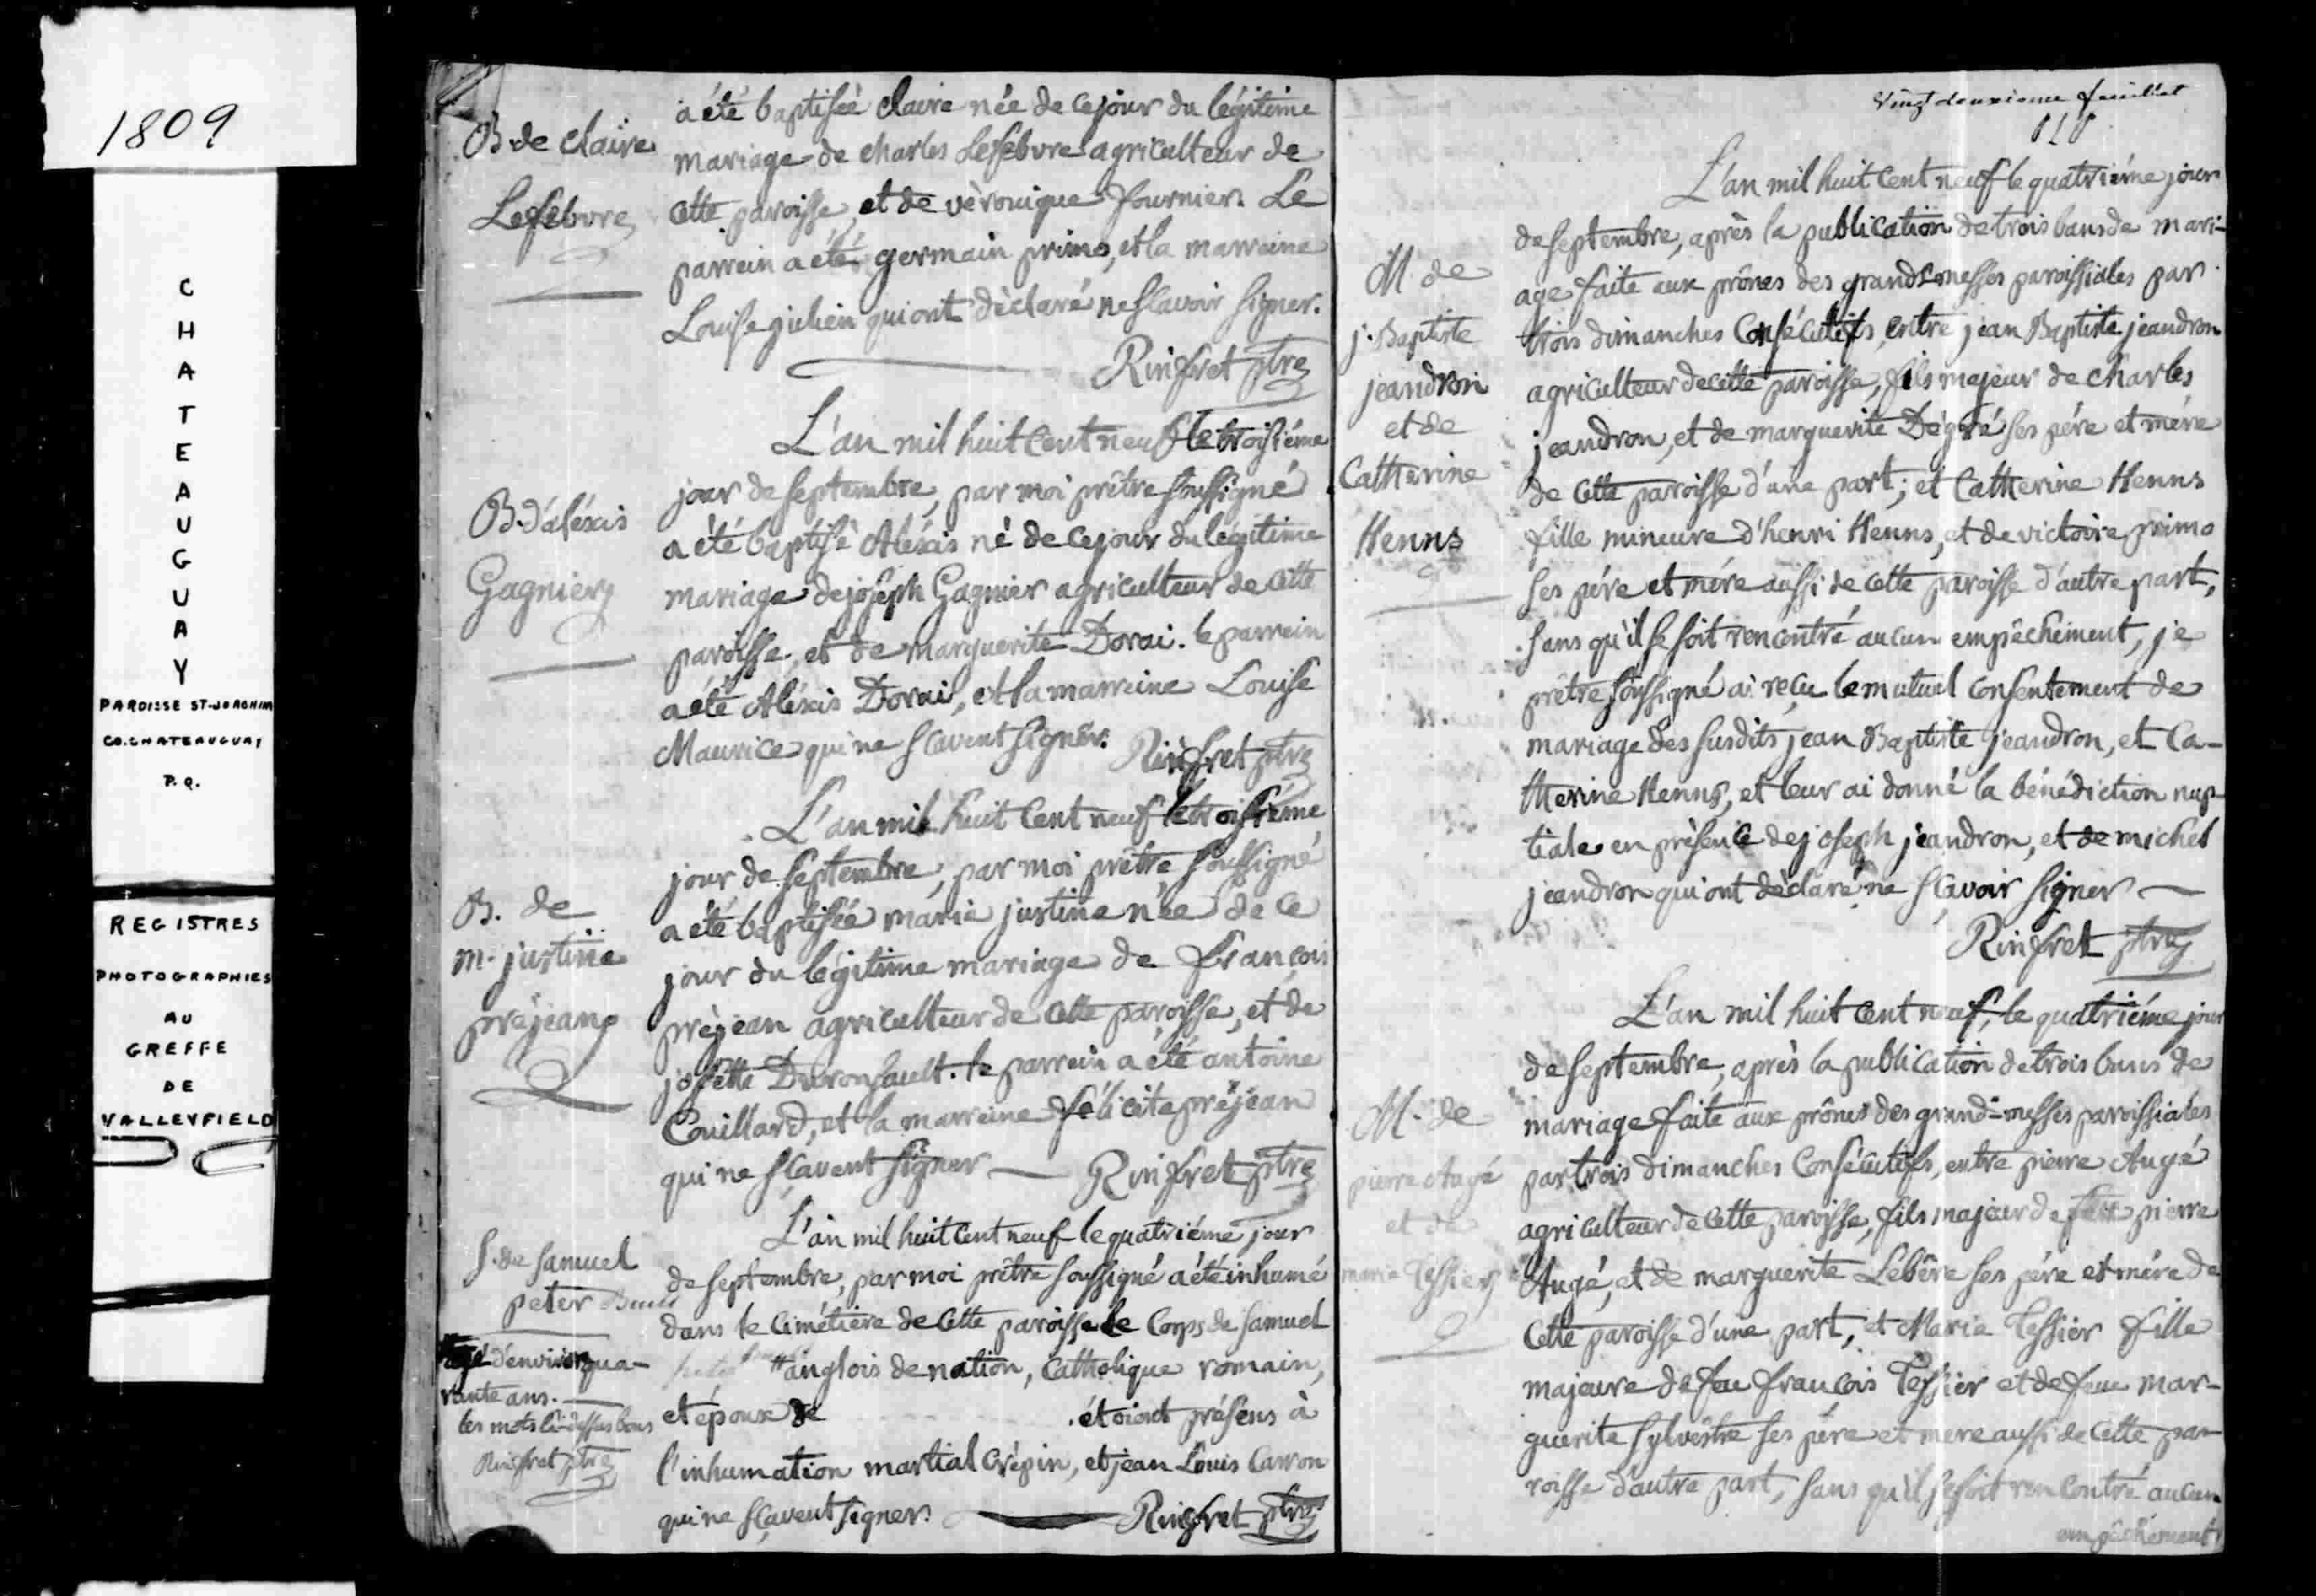 1809
C
H
A
T
E
A
U
G
U
A
Y
PAROISSE ST-JOACHIM
CO. CHATEAUGUAY
P.Q.
REGISTRES
PHOTOGRAPHIES
AU
GREFFE
DE
VALLEYFIELD
B. de Claire
Lefebvre
a été baptisée Claire née de ce jour du légitime
mariage de charles Lefebvre agriculteur de
cette paroisse, et de vèronique fournier. Le
parrein a été germain primo, et la marreine
Louise julien qui ont dèclaré ne sçavoir signer.
Rinfret ptre
B. d'aléxis
Gagnier
L'an mil huit cent neuf le troisiéme
jour de septembre, par moi prêtre soussigné
a été baptisè Aléxis né de ce jour du légitime
mariage de joseph Gagnier agriculteur de cette
paroisse, et de marguerite Dorai. le parrein
a été Aléxis Dorai, et la marreine Louise
Maurice qui ne sçavent signer. Rinfret ptre
B. de
m. justine
préjean
L'an mil huit cent neuf le troisiéme
jour de septembre, par moi prêtre soussigné
a été baptisée marie justine née de ce
jour du légitime mariage de françois
prèjean agriculteur de cette paroisse, et de
josette Duronsault. le parrein a été antoine
Couillard, et la marreine félicité préjean
qui ne sçavent signer Rinfret ptre
S. de Samuel
peter
âgé d'environ qua-
rante ans.
les mots ci-dessus bons
Rinfret ptre
L'an mil huit cent neuf le quatriéme jour
de septembre, par moi prêtre soussigné a été inhumé
dans le cimétière de cette paroisse le Corps de Samuel
anglois de nation, Catholique romain,
et époux de . étoient présens à
l'inhumation martial Crépin, et jean Louis Carron
qui ne sçavent signer. Rinfret ptre
Vingt deuxieme feuillet
M. de
j. Baptiste
jeandron
et de
Catherine
Henns
L'an mil huit cent neuf le quatriéme jour
de septembre, après la publication de trois bans de mari-
age faite aux prônes des grandsmesses paroissiales par
trois dimanches Consécutifs, entre jean Baptiste jeandron
agriculteur de cette paroisse, fils majeur de charles
jeandron, et de marguerite Dégré ses pére et mére
de cette paroisse d'une part; et Catherine Henns
fille mineure d'henri Henns, et de victoire primo
ses pére et mére aussi de cette paroisse d'autre part,
sans qu'il se soit rencontré aucun empêchement, je
prêtre soussigné ai reçu le mutuel consentement de
mariage des susdits jean Baptiste jeandron, et Ca-
therine Henns, et leur ai donné la bénédiction nup-
tiale en présence de joseph jeandron, et de michel
jeandron qui ont dèclaré ne sçavoir signer
Rinfret ptre
M. de
pierre Augé
et de
marie Tessier
L'an mil huit cent neuf, le quatriéme jour
de septembre, après la publication de trois bans de
mariage faite aux prônes des grand-messes paroissiales
par trois dimanches Consécutifs, entre pierre Augé
agriculteur de cette paroisse, fils majeur de feu pierre
Augé, et de marguerite Lebêre ses pére et mére de
cette paroisse d'une part, et Marie Tessier fille
majeure de feu françois Tessier et de feue mar-
guerite sylvestre ses pére et mere aussi de cette pa-
roisse d'autre part, sans qu'il se soit rencontré aucun
empêchement